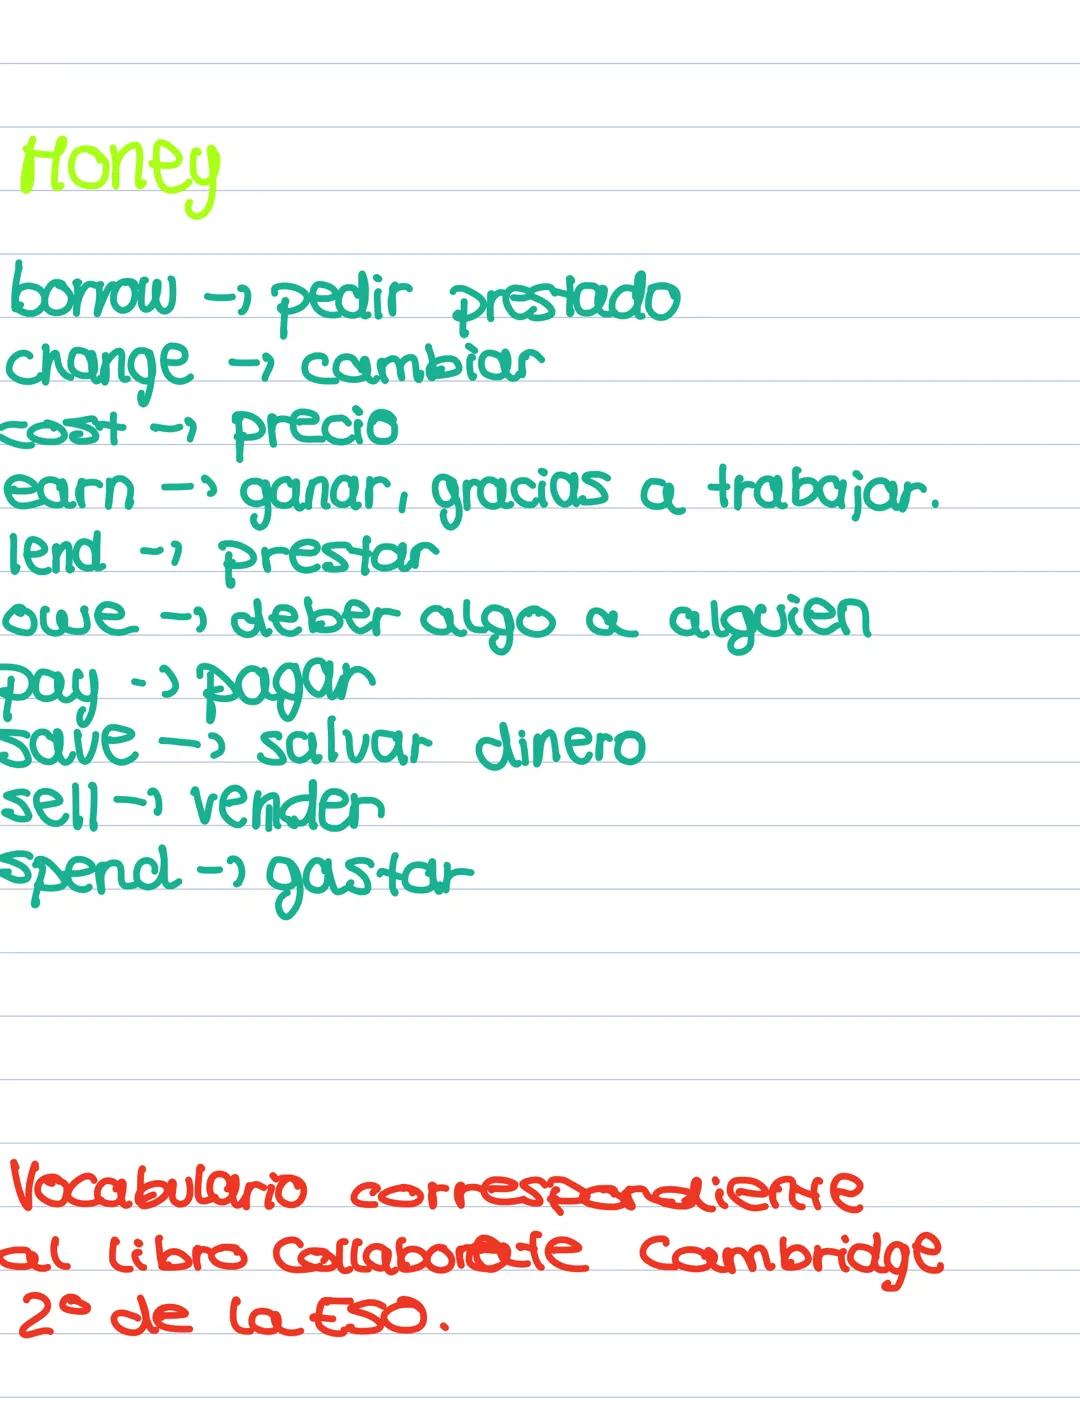 Honey
borrow -> pedir prestado
change -> cambiar
cost -> precio
earn -> ganar, gracias a trabajar.
lend -> prestar
owe -> deber algo a alguien
pay -> pagar
save -> salvar dinero
sell -> vender
spend -> gastar
Vocabulario correspondiente
al libro Collaborate Cambridge
2º de la ESO.